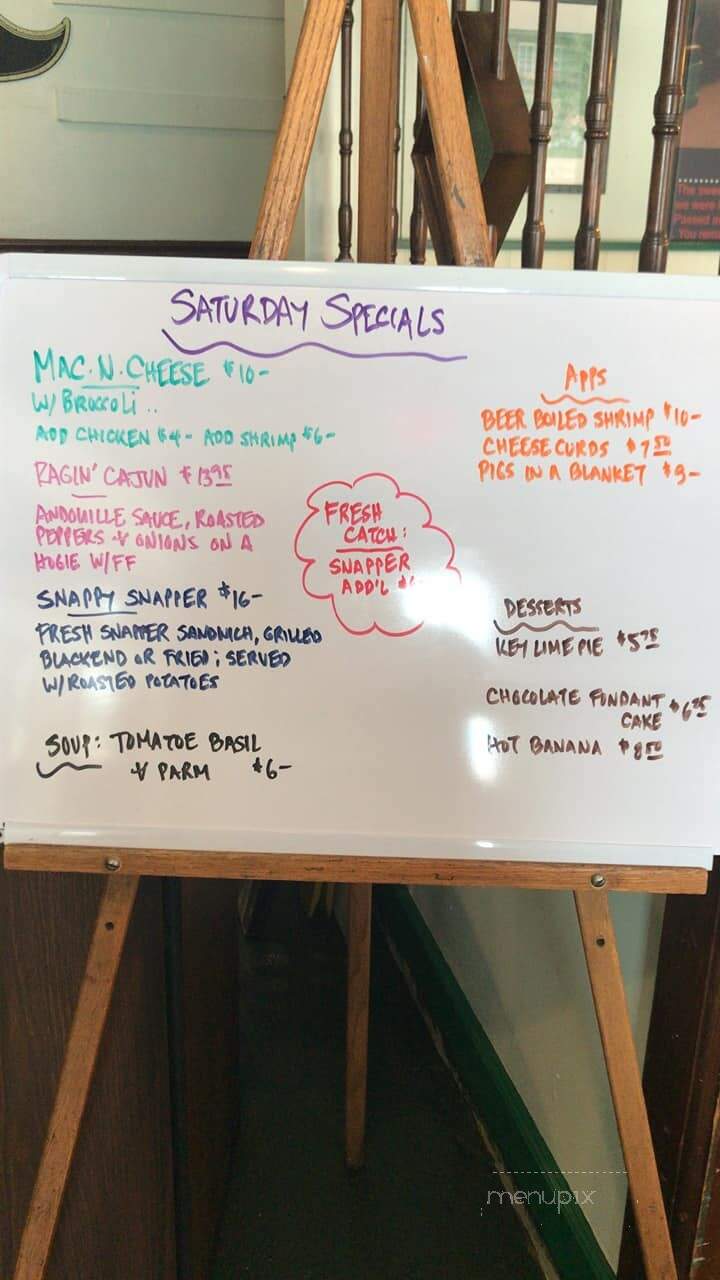 SATURDAY SPECIALS
MAC.N.CHEESE $10-
W/ BROCCOLI ..
ADD CHICKEN $4- ADD SHRIMP $6-
RAGIN' CAJUN $13.95
ANDOUILLE SAUCE, ROASTED
PEPPERS & ONIONS ON A
HOGIE W/FF
SNAPPY SNAPPER $16-
FRESH SNAPPER SANDWICH, GRILLED
BLACKEND OR FRIED; SERVED
W/ROASTED POTATOES
SOUP: TOMATOE BASIL
& PARM $6-
FRESH
CATCH:
SNAPPER
ADD'L
APPS
BEER BOILED SHRIMP $10-
CHEESE CURDS $7.50
PIGS IN A BLANKET $9-
DESSERTS
KEY LIME PIE $5.75
CHOCOLATE FONDANT
CAKE $6.25
HOT BANANA $8.50
we were
Passed
menupix